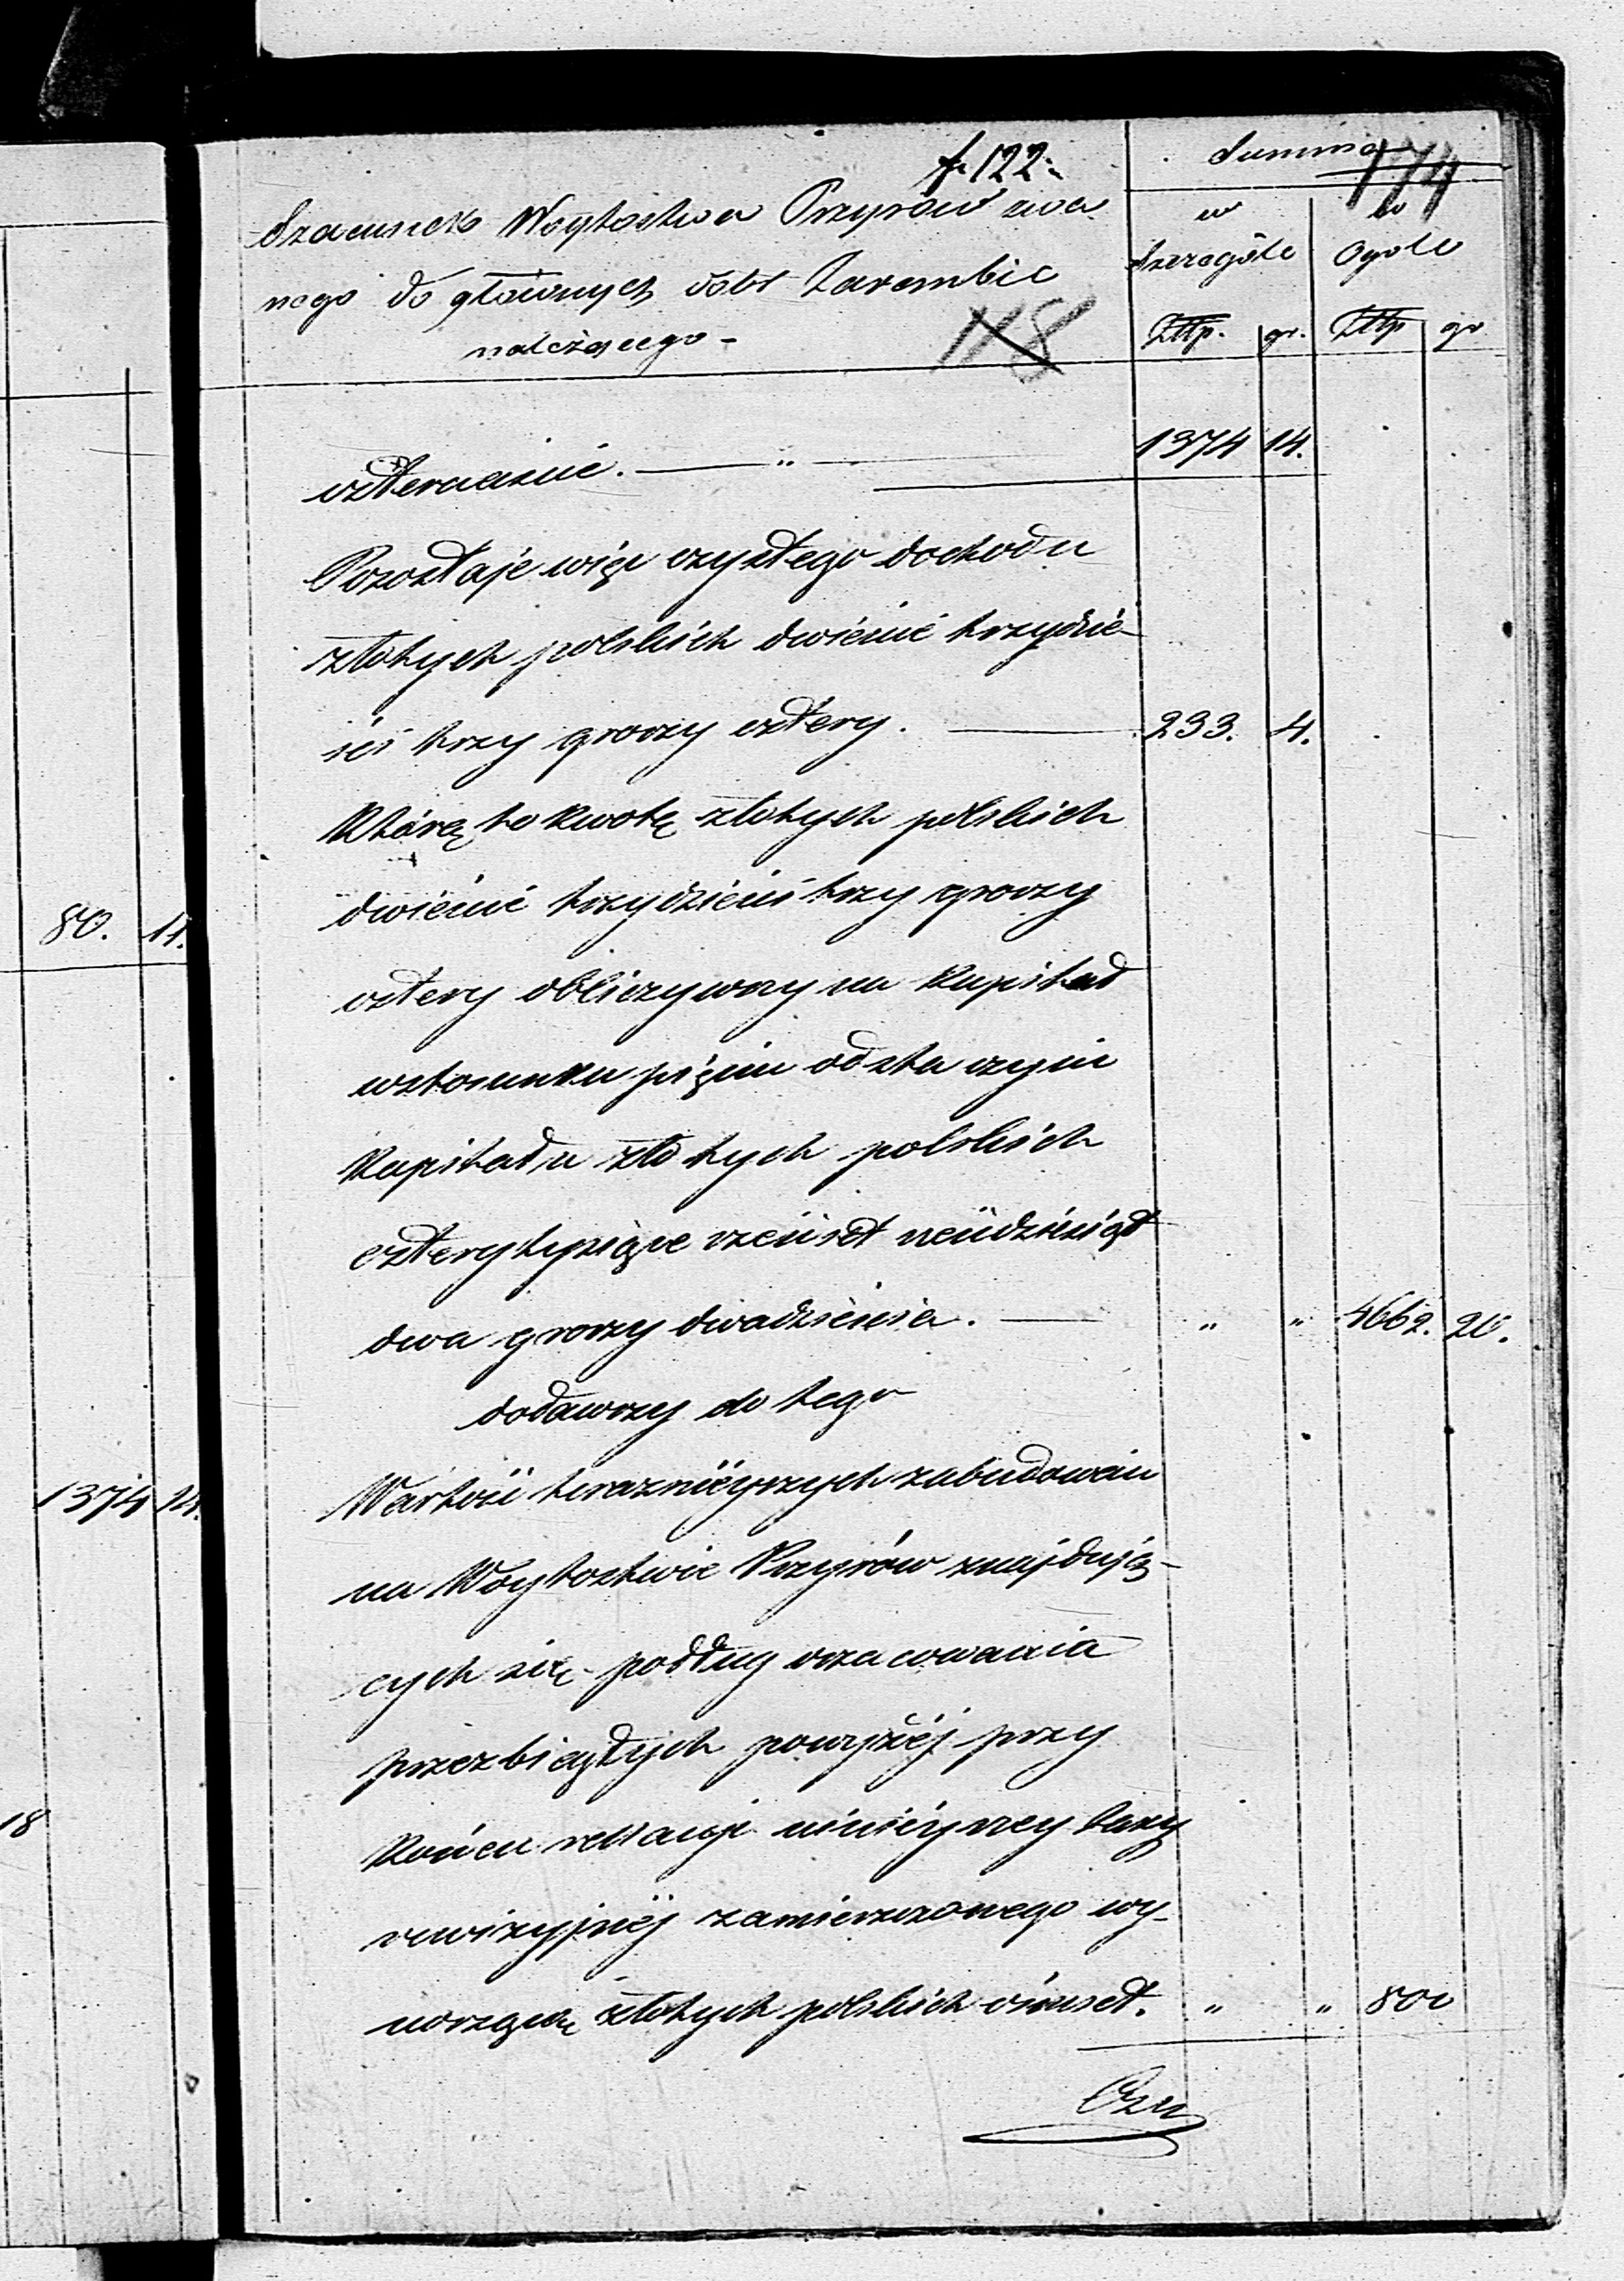 f. 122.
Summa
174
Szacunek Woytostwa Przyrów zwa
w
w
nego do głównych dóbr Zarembic
Szczególe
Ogole
należącego -
118
Złtp. gr. Złtp gr
czternaście. — " — 1374 14.
Pozostaje więc czystego dochodu
złotych polskich dwieście trzydzie-
ści trzy groszy cztery. — 233. 4.
Którą to kwotę złotych polskich
dwieście trzydzieści trzy groszy
cztery obliczywszy na kapitał
80. 11.
wstosunku pięciu odsta czyni
kapitału złotych polskich
cztery tysiące sześćset sześćdziesiąt
dwa groszy dwadzieścia. — " " 4662. 20.
dodawszy do tego
Wartość teraznieyszych zabudowań
1374 14.
na Woytostwie Przyrów znajdują-
cych się podług oszacowania
przez biegłych powyżéj przy
18
Końcu relacyi ninieyszey taxy
rewizyjnéj zamieszczonego wy-
noszącą złotych polskich ośmset. " " 800